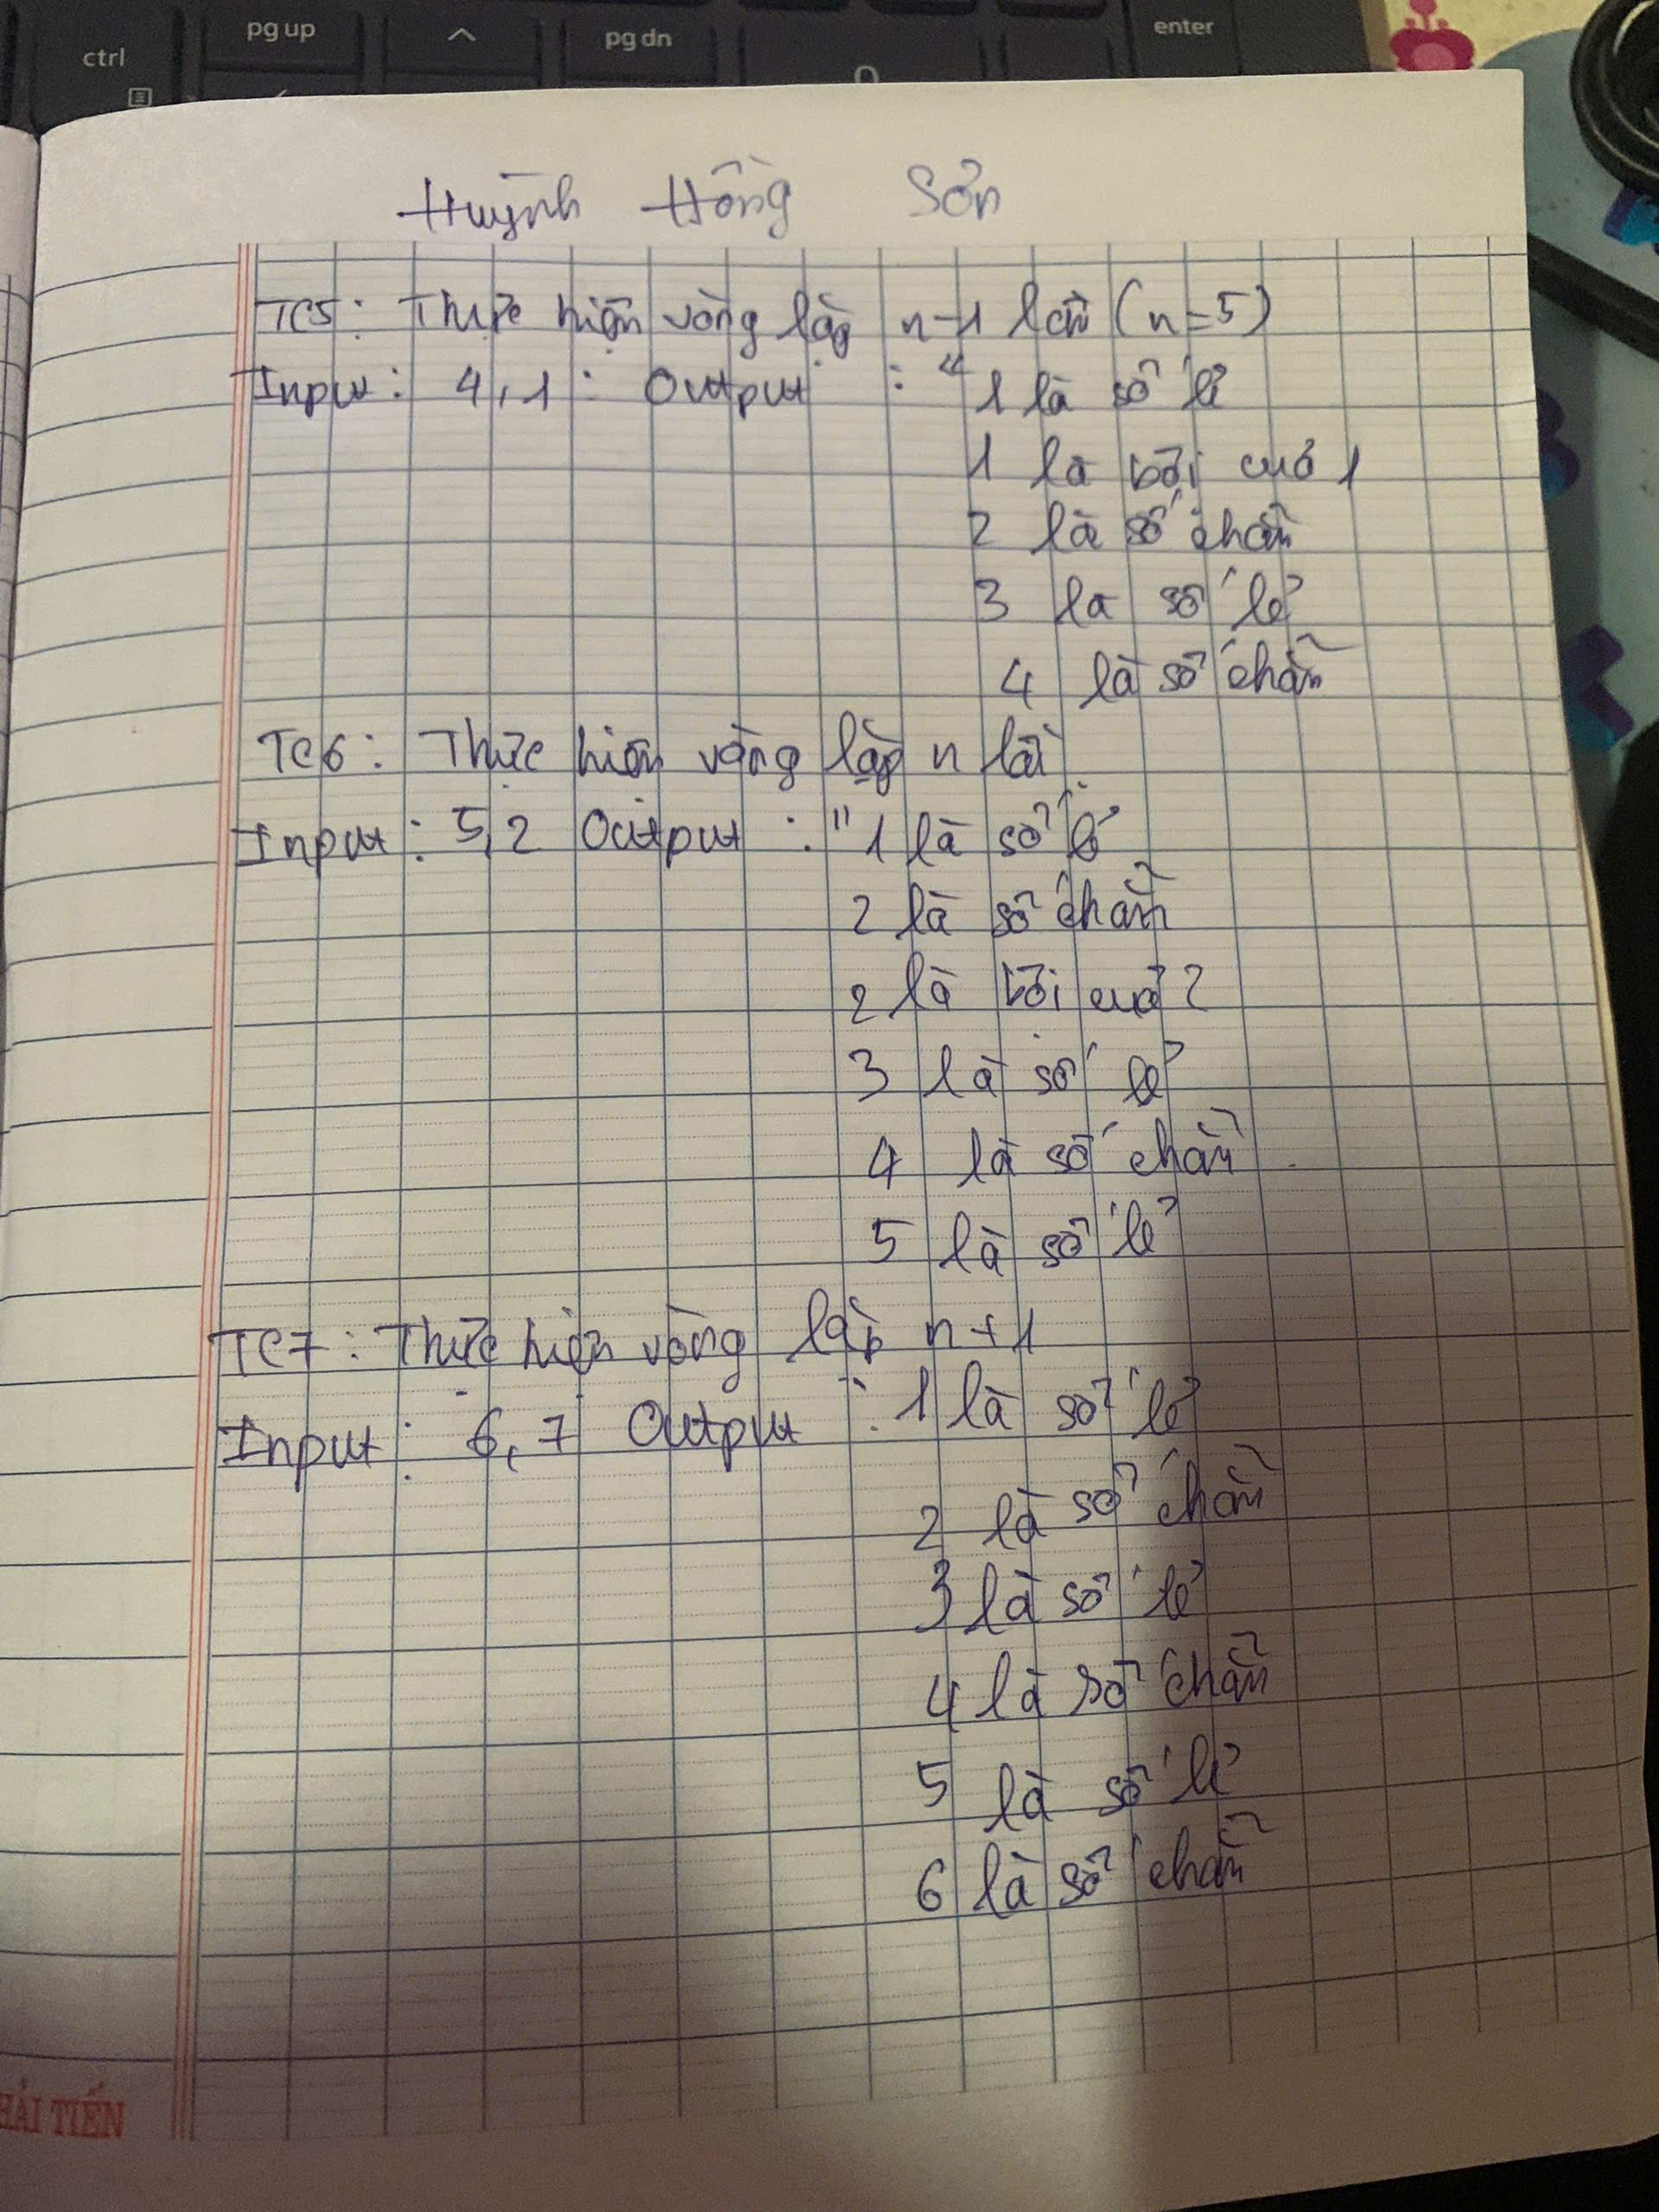 ctrl
pg up
pg dn
enter
Huỳnh Hồng Sơn
TC5: Thực hiện vòng lặp n-1 lần (n=5)
Input: 4,1 : Output : "1 là số lẻ
1 là bội của 1
2 là số chẵn
3 là số lẻ
4 là số chẵn
TC6: Thực hiện vòng lặp n lần.
Input: 5,2 Output : "1 là số lẻ
2 là số chẵn
2 là bội của 2
3 là số lẻ
4 là số chẵn
5 là số lẻ
TC7: Thực hiện vòng lặp n+1
Input: 6,7 Output : 1 là số lẻ
2 là số chẵn
3 là số lẻ
4 là số chẵn
5 là số lẻ
6 là số chẵn
HẢI TIẾN